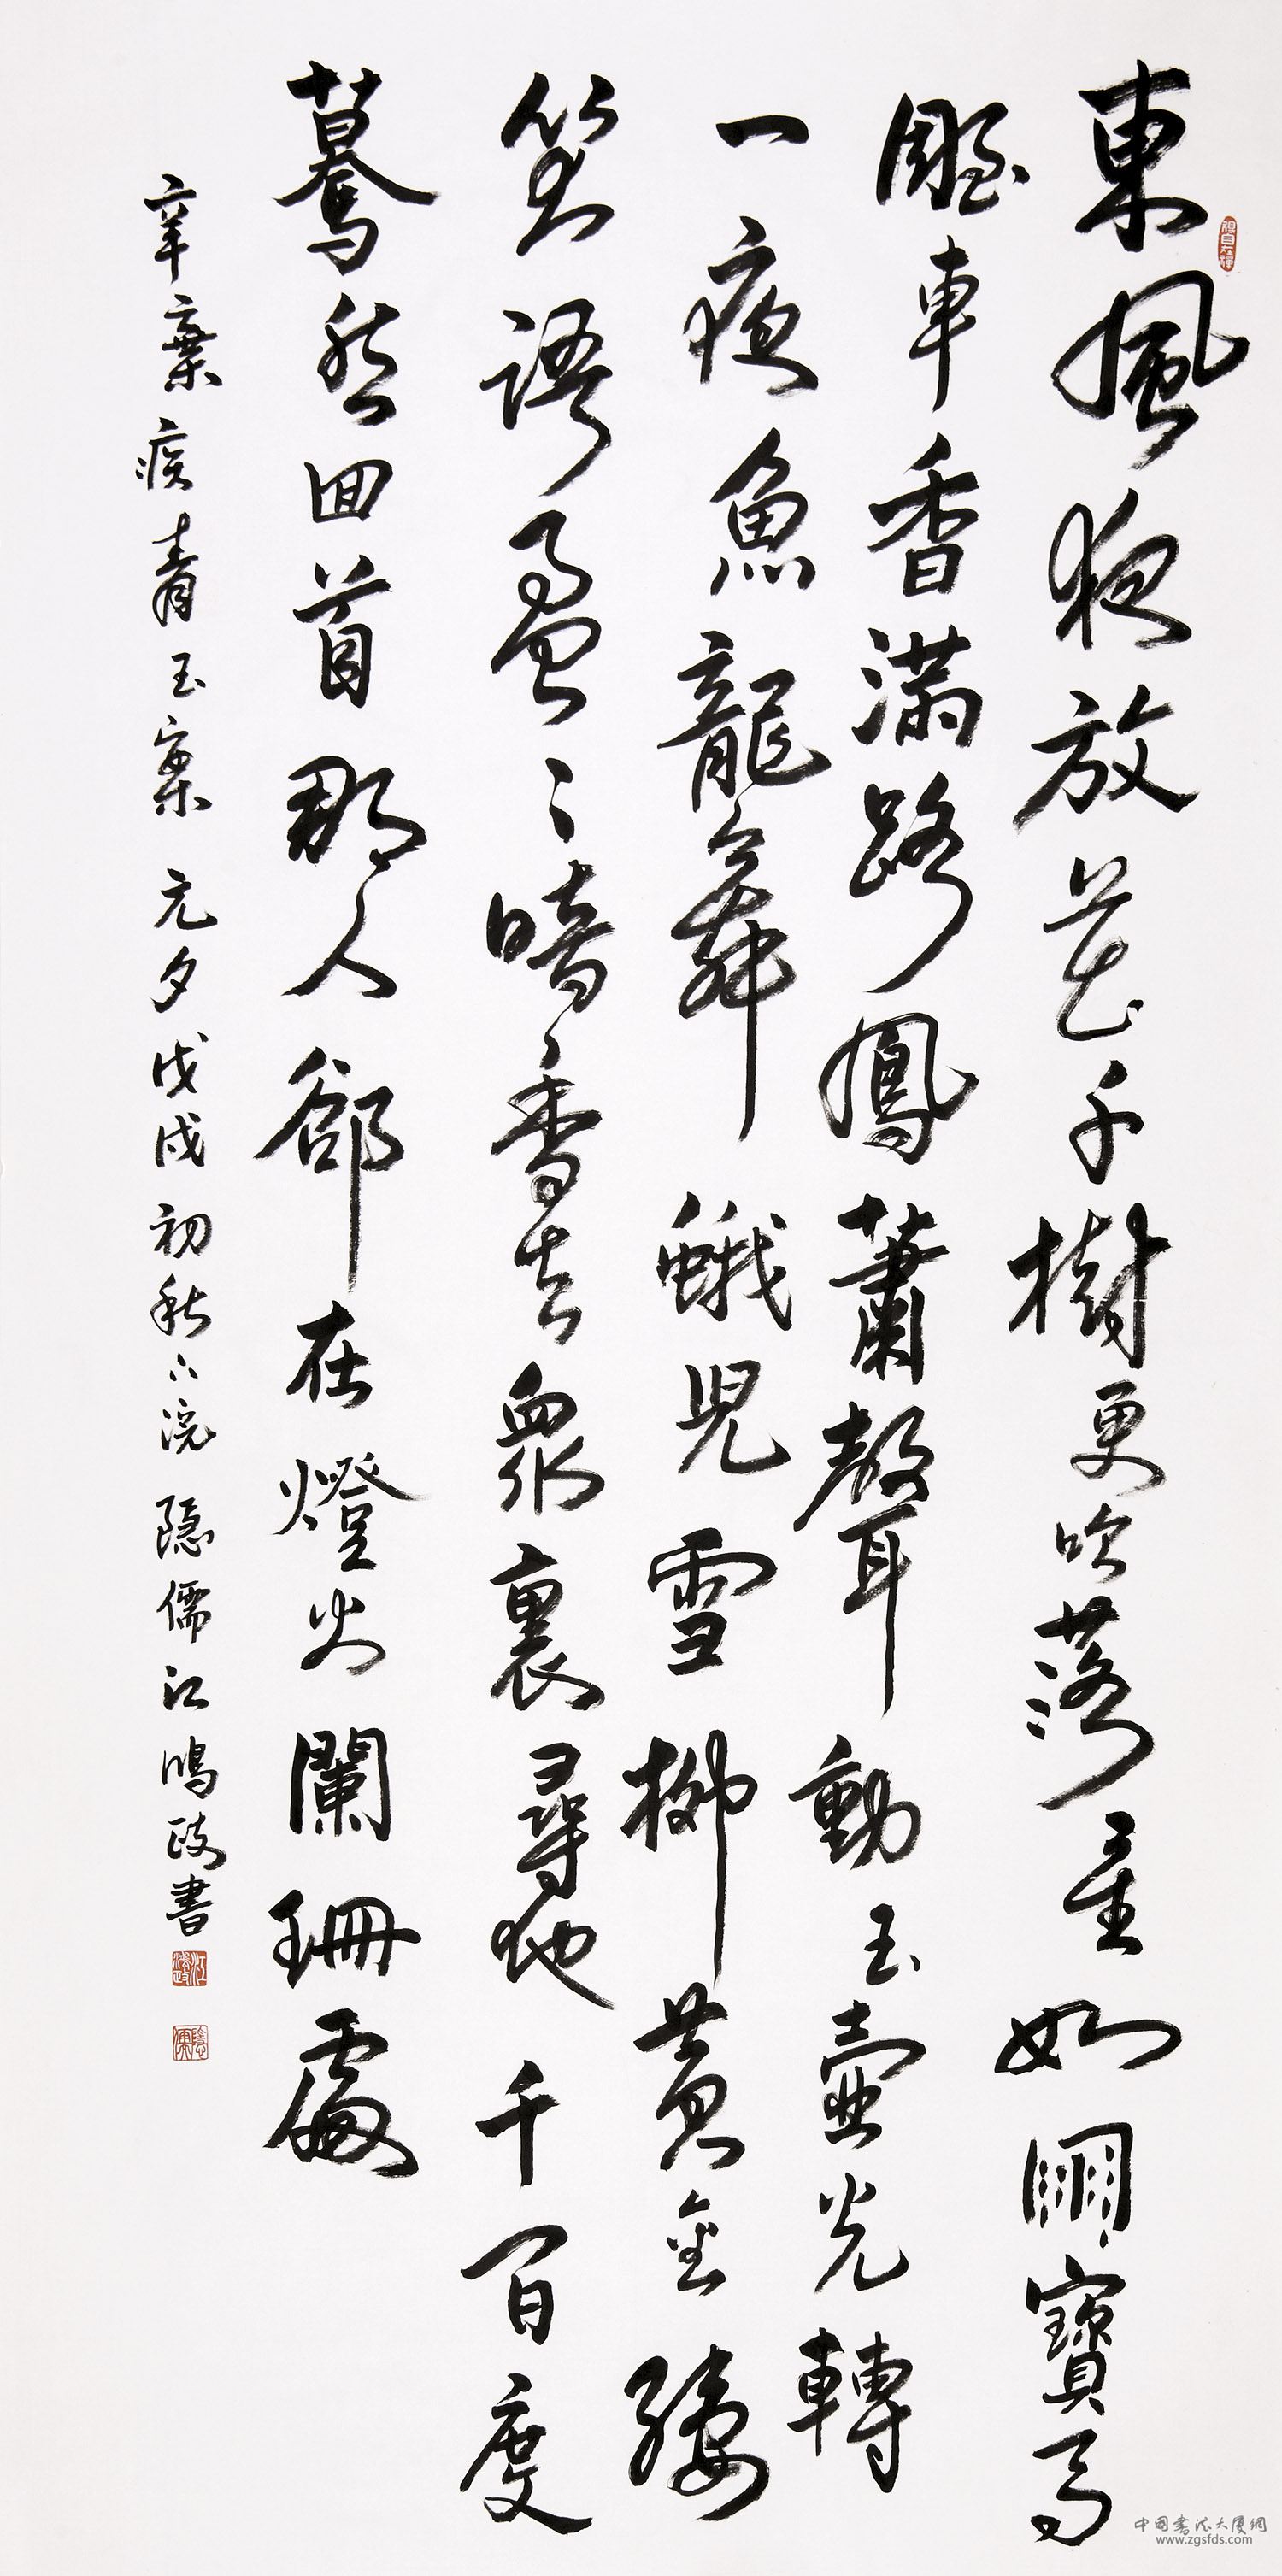 東風夜放花千樹更吹落星如雨寶馬
雕車香滿路鳳蕭聲動玉壺光轉
一夜魚龍舞蛾兒雪柳黃金縷
笑語盈〻暗香去衆裏尋他千百度
驀然回首那人卻在燈火闌珊處
辛棄疾青玉案元夕戊戌初秋六浣隱儒江鴻政書
中國書法大廈網
www.zgsfds.com